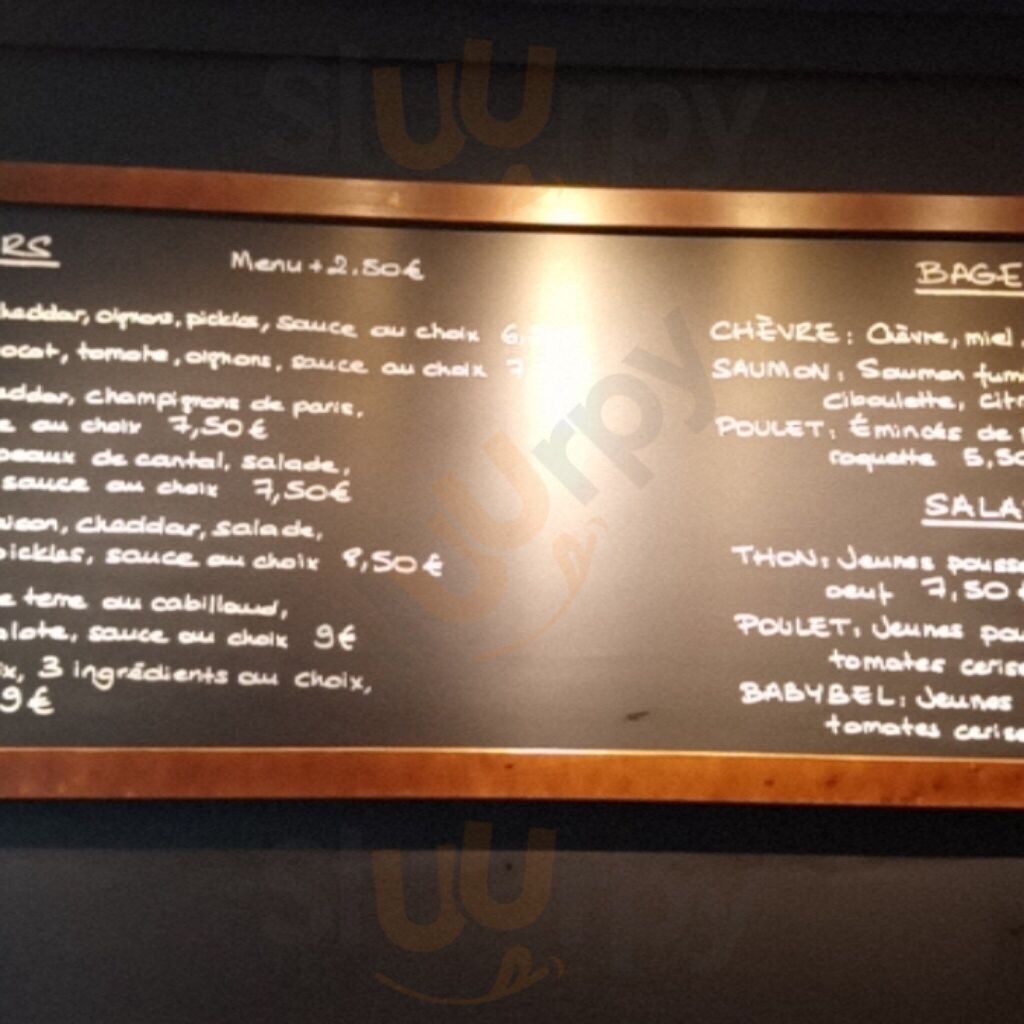 RS
Menu + 2.50€
cheddar, oignons, pickles, sauce au choix 6,
ocat, tomate, oignons, sauce au choix 7
eddar, champignons de paris,
e au choix 7,50€
peaux de cantal, salade,
sauce au choix 7,50€
cheddar, salade,
pickles, sauce au choix 8,50€
e terre ou cabillaud,
alote, sauce au choix 9€
ix, 3 ingrédients au choix,
9€
BAGE
CHÈVRE: Chèvre, miel,
SAUMON: Saumon fum
ciboulette, citr
POULET: Émincés de
roquette 5,50
SALA
THON: Jeunes pousse
oeuf 7,50€
POULET: Jeunes pou
tomates cerise
BABYBEL: Jeunes
tomates cerise
slUUrpy
UUrpy
UUrpy